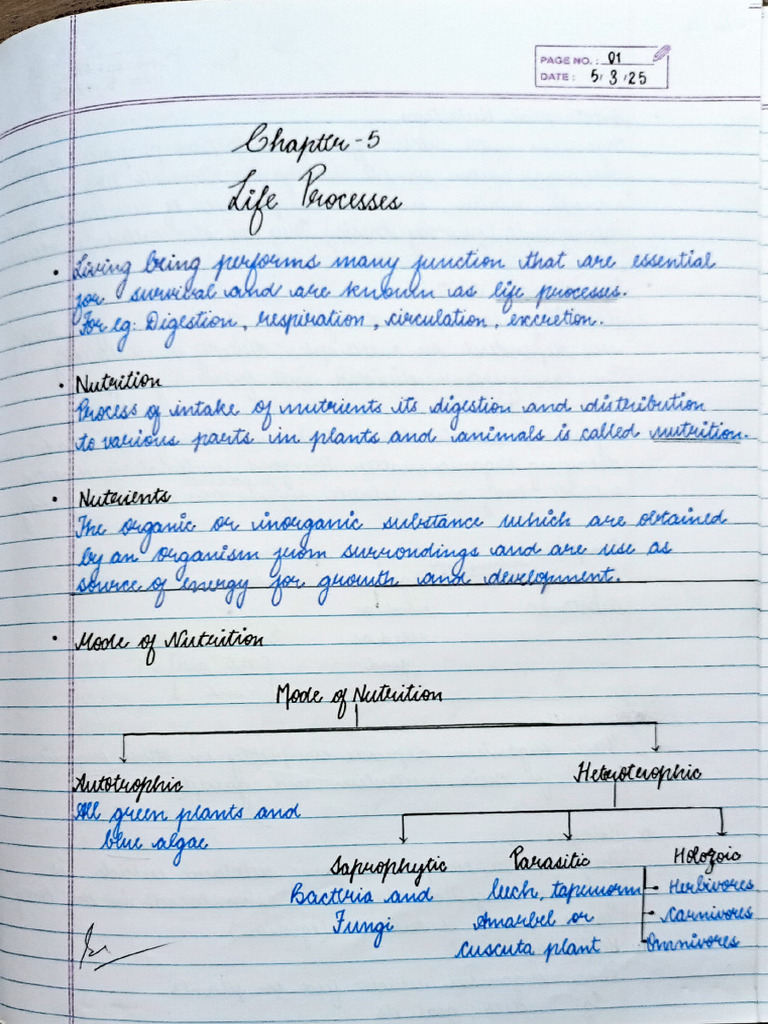 PAGE NO.: 01
DATE: 5/3/25
Chapter-5
Life Processes
• Living being performs many function that are essential
for survival and are known as life processes.
For eg: Digestion, respiration, circulation, excretion.
• Nutrition
Process of intake of nutrients its digestion and distribution
to various parts in plants and animals is called nutrition.
• Nutrients
The organic or inorganic substance which are obtained
by an organism from surrondings and are use as
source of energy for growth and development.
• Mode of Nutrition
Mode of Nutrition
Autotrophic
All green plants and
blue algae
Heterotrophic
Saprophytic
Bacteria and
Fungi
Parasitic
leech, tapeworm
Amarbel or
cuscuta plant
Holozoic
• Herbivores
• Carnivores
• Omnivores